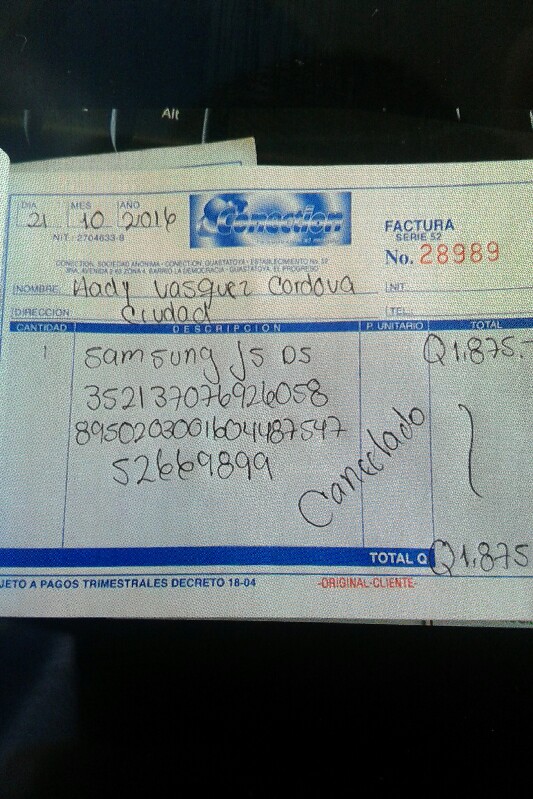 Alt
DIA MES AÑO
21 10 2016
Conection
NIT: 2704633-8
FACTURA
SERIE 52
No. 28989
CONECTION, SOCIEDAD ANONIMA - CONECTION, GUASTATOYA - ESTABLECIMIENTO No. 52
3RA. AVENIDA 2-43 ZONA 4, BARRIO LA DEMOCRACIA - GUASTATOYA, EL PROGRESO
NOMBRE: Hady Vasquez Cordova NIT:
DIRECCION Ciudad TEL:
CANTIDAD DESCRIPCION P. UNITARIO TOTAL
1 Samsung J5 DS Q1,875.-
352137076926058
8950203001604487547
52669899
Cancelado
TOTAL Q Q1,875
JETO A PAGOS TRIMESTRALES DECRETO 18-04 -ORIGINAL-CLIENTE-